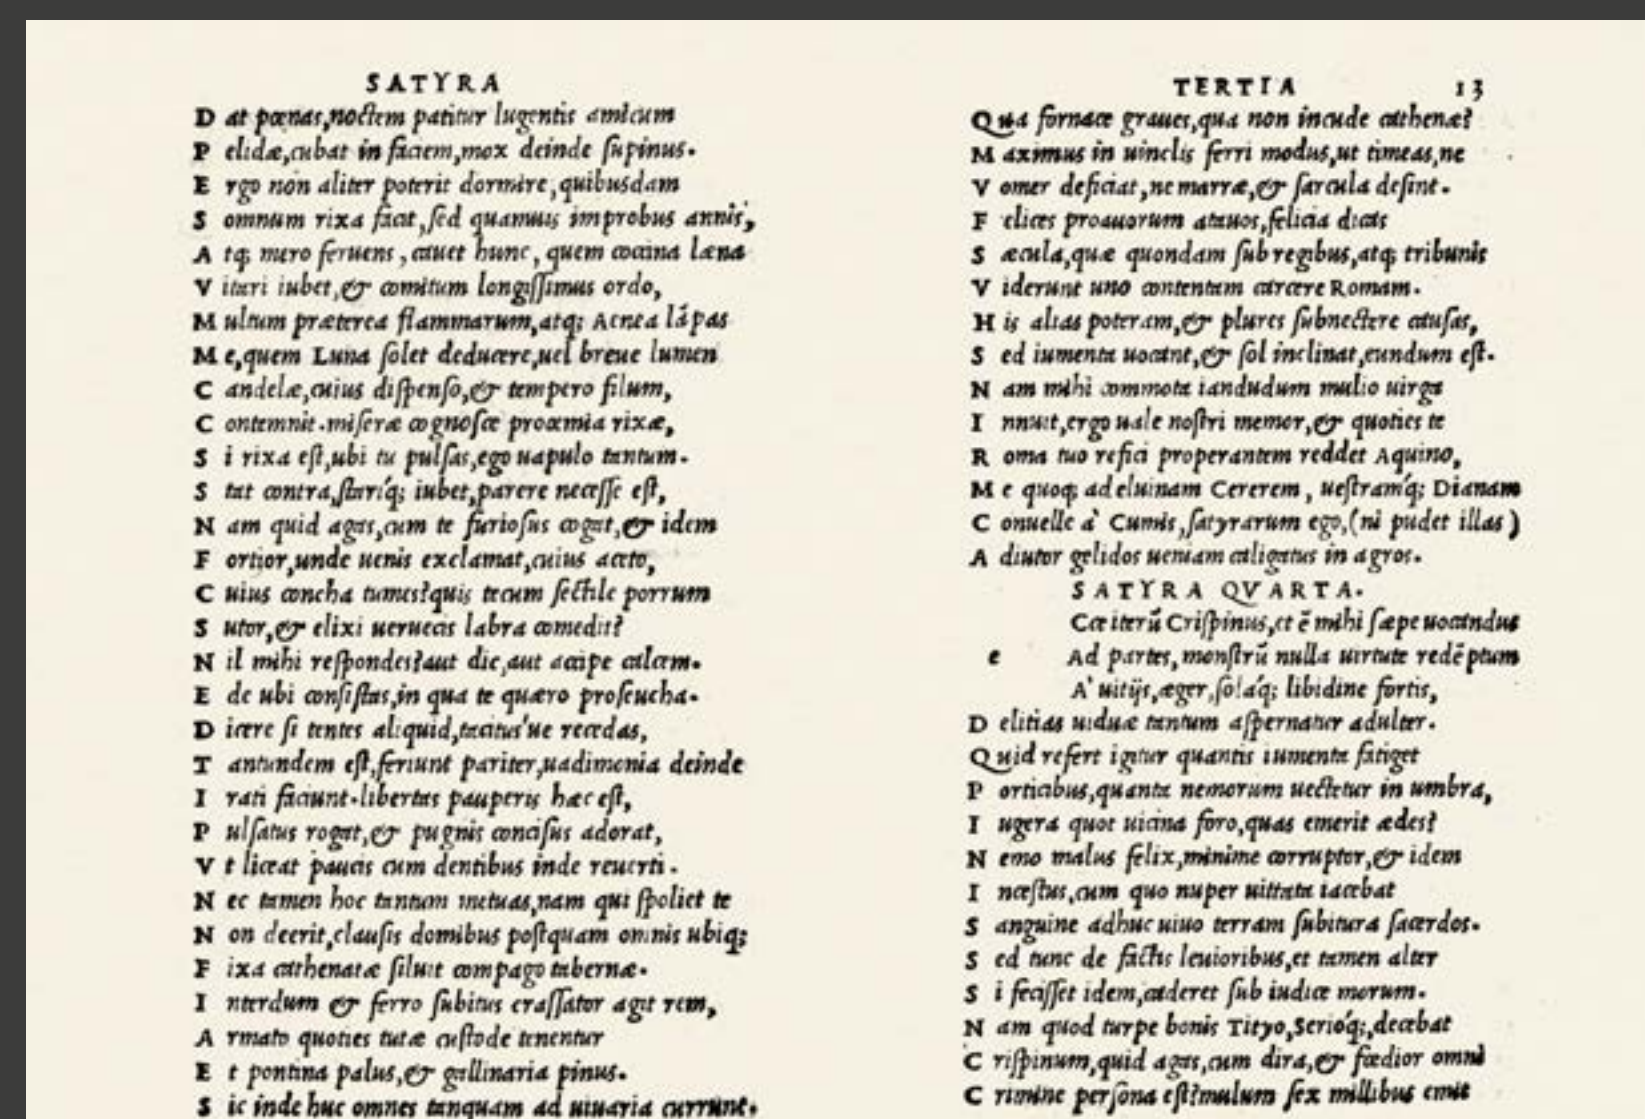 SATYRA
D at pœnas, noctem patitur lugentis amicum
P elidæ, cubat in faciem, mox deinde supinus.
E rgo non aliter poterit dormire, quibusdam
S omnum rixa facit, sed quamuis improbus annis,
A tq; mero feruens, cauet hunc, quem coccina læna
V itari iubet, & comitum longissimus ordo,
M ultum præterea flammarum, atq; Aenea lāpas
M e, quem Luna solet deducere, uel breue lumen
C andelæ, cuius dispenso, & tempero filum,
C ontemnit. miseræ cognosce proœmia rixæ,
S i rixa est, ubi tu pulsas, ego uapulo tantum.
S tat contra, stariq́; iubet, parere necesse est,
N am quid agas, cum te furiosus cogat, & idem
F ortior, unde uenis exclamat, cuius aceto,
C uius concha tumes? quis tecum sectile porrum
S utor, & elixi ueruecis labra comedit?
N il mihi respondes? aut dic, aut accipe calcem.
E de ubi consistas, in qua te quæro proseucha.
D icere si tentes aliquid, tacitus'ue recedas,
T antundem est, feriunt pariter, uadimonia deinde
I rati faciunt. libertas pauperis hæc est,
P ulsatus rogat, & pugnis concisus adorat,
V t liceat paucis cum dentibus inde reuerti.
N ec tamen hoc tantum metuas, nam qui spoliet te
N on deerit, clausis domibus postquam omnis ubiq;
F ixa cathenatæ siluit compago tabernæ.
I nterdum & ferro subitus crassator agit rem,
A rmato quoties tutæ custode tenentur
E t pontina palus, & gallinaria pinus.
S ic inde huc omnes tanquam ad uiuaria currunt.
TERTIA 13
Q ua fornace graues, qua non incude cathenæ?
M aximus in uinclis ferri modus, ut timeas, ne
V omer deficiat, ne marræ, & sarcula desint.
F elices proauorum atauos, felicia dicas
S æcula, quæ quondam sub regibus, atq; tribunis
V iderunt uno contentam carcere Romam.
H is alias poteram, & plures subnectere causas,
S ed iumenta uocant, & sol inclinat, eundum est.
N am mihi commota iandudum mulio uirga
I nnuit, ergo uale nostri memor, & quoties te
R oma tuo refici properantem reddet Aquino,
M e quoq; ad eluinam Cererem, uestramq́; Dianam
C onuelle à Cumis, satyrarum ego, (ni pudet illas)
A diutor gelidos ueniam caligatus in agros.
SATYRA QVARTA.
Cce iterū Crispinus, et ē mihi sæpe uocandus
e Ad partes, monstrū nulla uirtute redēptum
A' uitijs, æger, solaq́; libidine fortis,
D elitias uiduæ tantum aspernatur adulter.
Q uid refert igitur quantis iumenta fatiget
P orticibus, quanta nemorum uectetur in umbra,
I ugera quot uicina foro, quas emerit ædes?
N emo malus felix, minime corruptor, & idem
I ncestus, cum quo nuper uittata iacebat
S anguine adhuc uiuo terram subitura sacerdos.
S ed tunc de factis leuioribus, et tamen alter
S i fecisset idem, caderet sub iudice morum.
N am quod turpe bonis Tityo, Serioq́;, decebat
C rispinum, quid agas, cum dira, & fœdior omni
C rimine persona est? mulum sex millibus emit